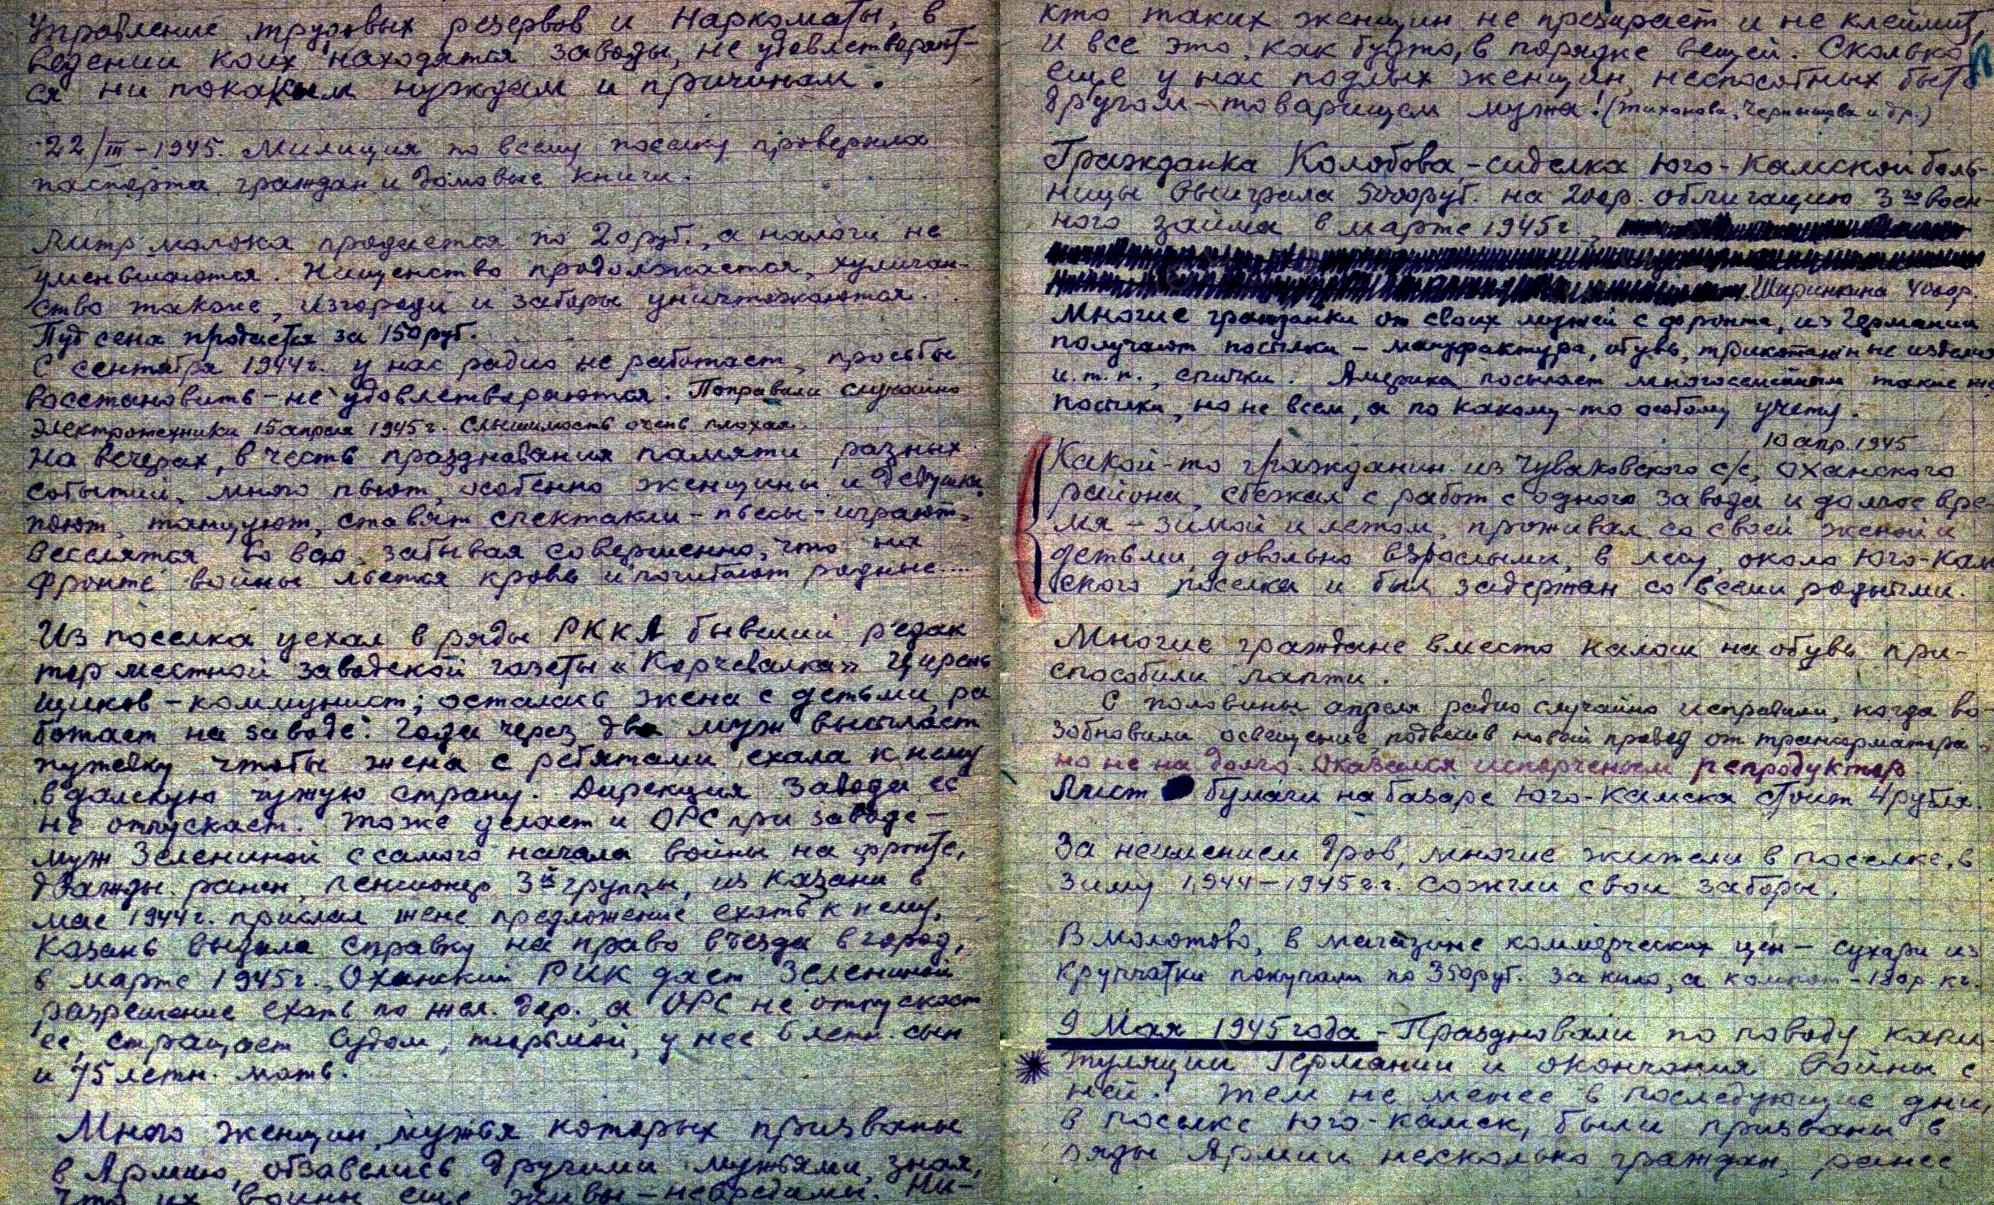 Управление трудовых резервов и Наркоматы, в
ведении коих находятся заводы, не удовлетворяют-
ся ни по каким нуждам и причинам.
22/III-1945. Милиция по всему поселку проверила
паспорта граждан и домовые книги.
Литр молока продается по 20 руб., а налоги не
уменьшаются. Нищенство продолжается, хулиган-
ство также, изгороди и заборы уничтожаются.
Пуд сена продается за 150 руб.
С сентября 1944 г. у нас радио не работает, просьбы
восстановить - не удовлетворяются. Поправили случайно
электротехники 15 апреля 1945 г. Слышимость очень плохая.
На вечерах, в честь празднования памяти разных
событий, много пьют, особенно женщины и девушки
поют, танцуют, ставят спектакли - пьесы - играют,
веселятся во всю, забывая совершенно, что на
фронте войны льется кровь и погибают родные....
Из поселка уехал в ряды РККА бывший редак
тор местной заводской газеты "Корчевалка"
щиков - коммунист; осталась жена с детьми, ра
ботает на заводе. Года через два муж высылает
путевку чтобы жена с ребятами ехала к нему
в далекую чужую страну. Дирекция завода ее
не отпускает. Тоже делает и ОРС при заводе -
муж Зелениной с самого начала войны на фронте,
дважды ранен, пенсионер 3й группы, из Казани в
мае 1944 г. прислал жене предложение ехать к нему,
Казань выдала справку на право въезда в город,
в марте 1945 г. Оханский РИК дает Зелениной
разрешение ехать по жел. дор., а ОРС не отпускает
ее, стращает судом, тюрьмой, у нее 6 летн. сын
и 75 летн. мать.
Много женщин, мужья которых призваны
в Армию, обзавелись другими мужьями, зная,
что их воины еще живы - невредимы. Ни-
кто таких женщин не презирает и не клеймит,
и все это, как будто, в порядке вещей. Сколько
еще у нас подлых женщин, неспособных быть
другом - товарищем мужа! (Тихонова, Чернышова и др.)
Гражданка Колобова - сиделка Юго-Камской боль-
ницы выиграла 5000 руб. на 200 р. облигацию 3го воен-
ного займа в марте 1945 г.
Ширинкина 4000 р.
Многие гражданки от своих мужей с фронта, из Германии
получают посылки - мануфактура, обувь, трикотажные изделия
и.т.п., спички. Америка посылает многосемейным такие же
посылки, но не всем, а по какому-то особому учету.
10 апр. 1945
Какой-то гражданин из Чуваковского с/с, Оханского
района, сбежал с работ с одного завода и долгое вре-
мя - зимой и летом, проживал со своей женой и
детьми, довольно взрослыми, в лесу, около Юго-Кам
ского поселка и был задержан со всеми родными.
Многие граждане вместо калош на обувь при-
способили лапти.
С половины апреля радио случайно исправили, когда во-
зобновили освещение, подвесив новый провод от трансформатора,
но не на долго. Оказался испорченым репродуктор
Лист бумаги на базаре Юго-Камска стоит 4 рубля.
За неимением дров, многие жители в поселке, в
зиму 1944-1945 г.г. сожгли свои заборы.
В Молотово, в магазине коммерческих цен - сухари из
крупчатки покупали по 350 руб. за кило, а компот - 180 р. кг.
9 Мая 1945 года - Праздновали по поводу капи-
туляции Германии и окончания войны с
ней. Тем не менее в последующие дни,
в поселке Юго-Камск, были призваны в
ряды Армии несколько граждан, ранее